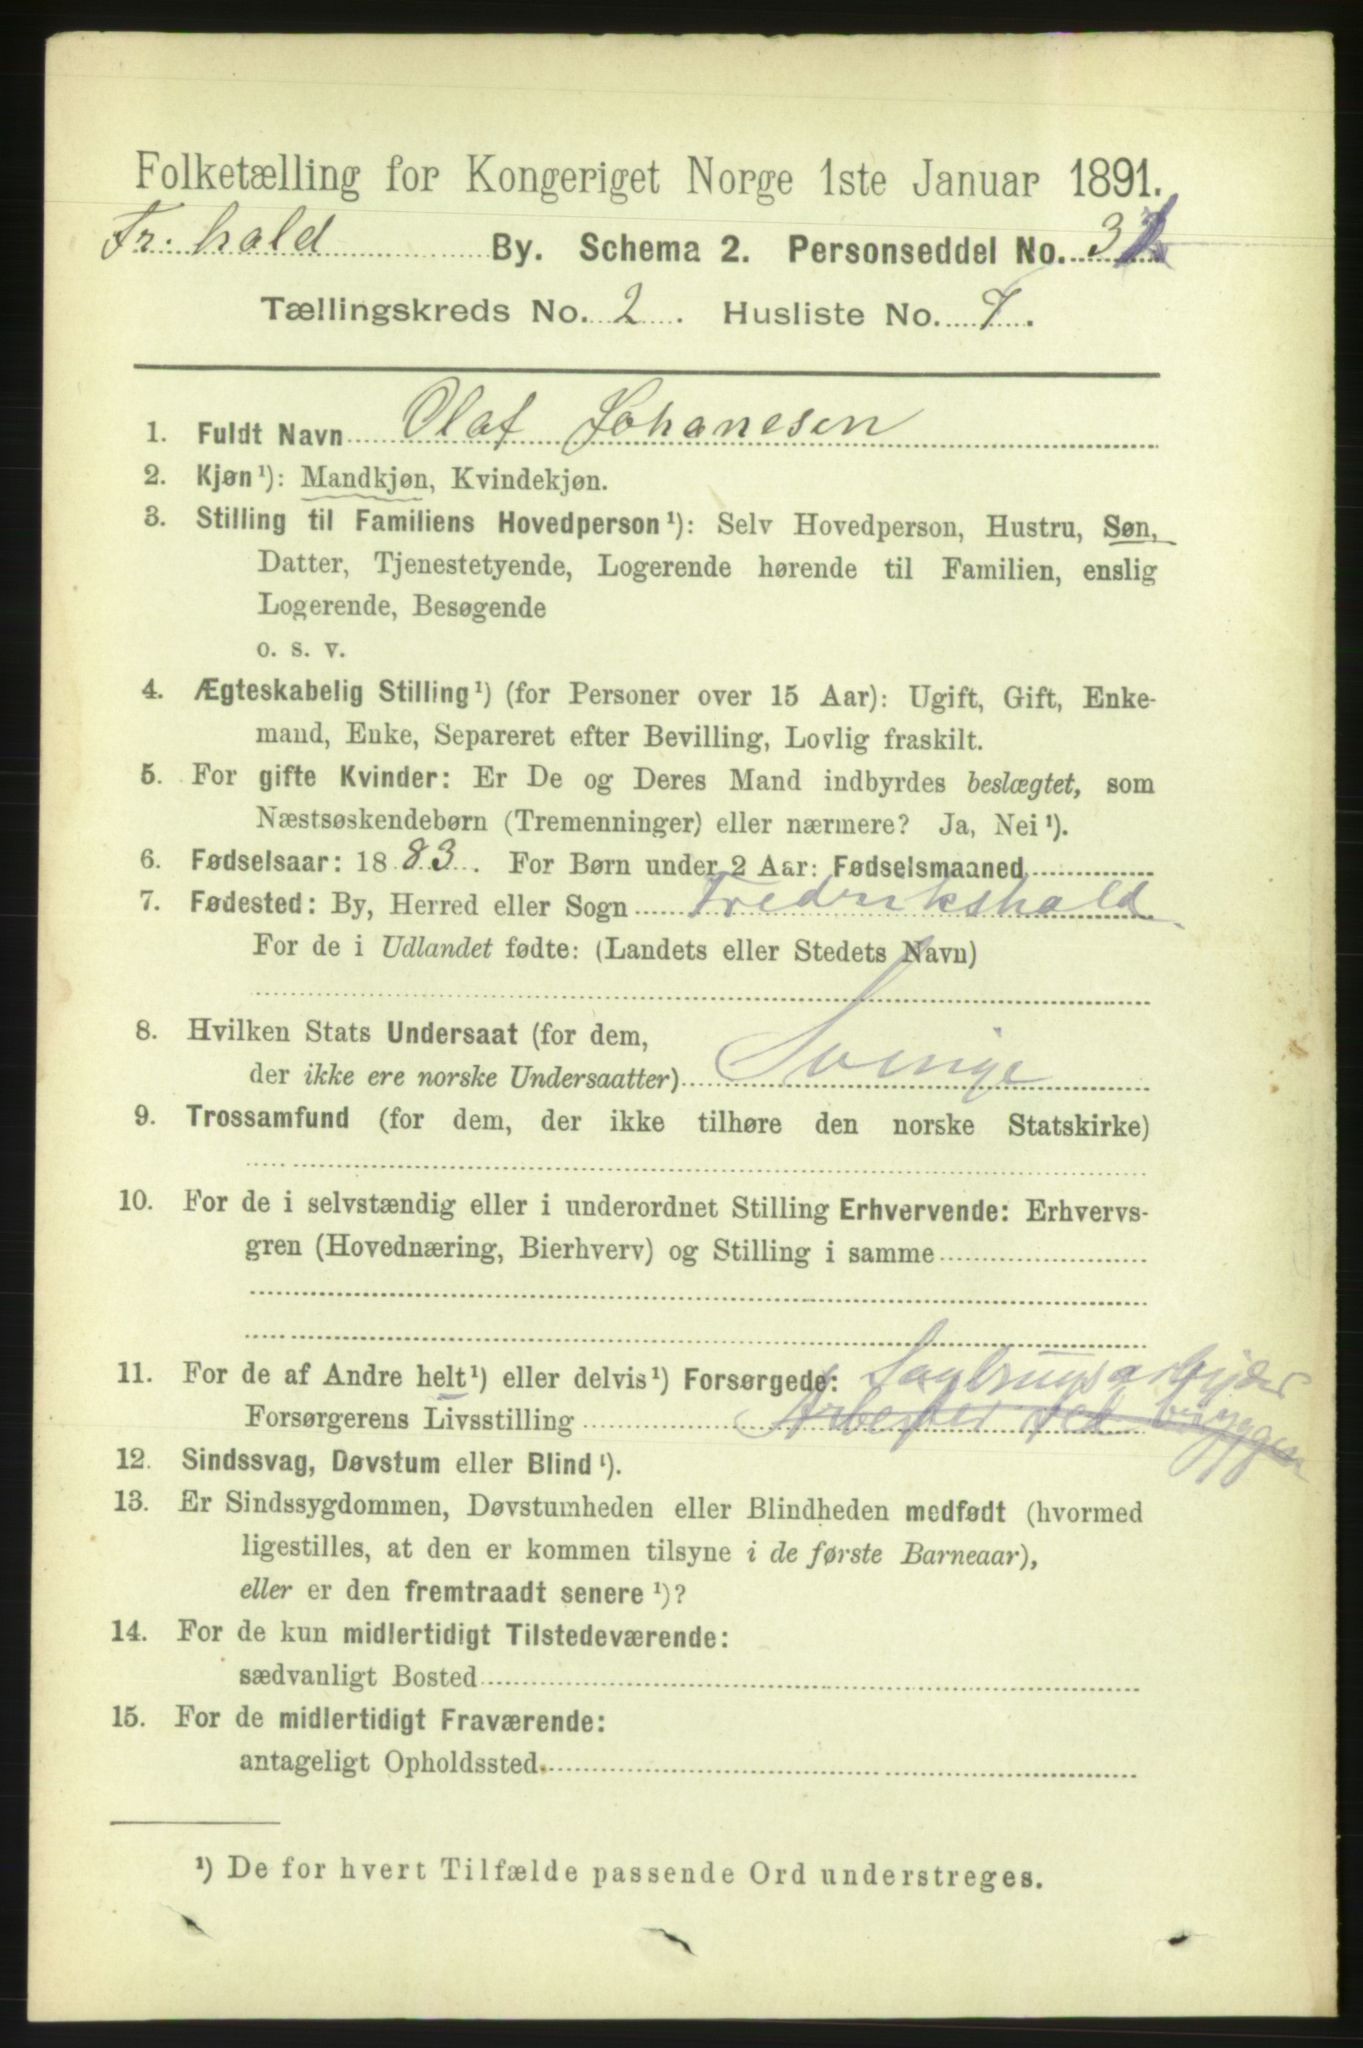 Folketælling for Kongeriget Norge 1ste Januar 1891.
Fr.hald By. Schema 2. Personseddel No. 32
Tællingskreds No. 2. Husliste No. 7.
1. Fuldt Navn Olaf Johanesen
2. Kjøn¹): Mandkjøn, Kvindekjøn.
3. Stilling til Familiens Hovedperson¹): Selv Hovedperson, Hustru, Søn,
Datter, Tjenestetyende, Logerende hørende til Familien, enslig
Logerende, Besøgende
o. s. v.
4. Ægteskabelig Stilling¹) (for Personer over 15 Aar): Ugift, Gift, Enke-
mand, Enke, Separeret efter Bevilling, Lovlig fraskilt.
5. For gifte Kvinder: Er De og Deres Mand indbyrdes beslægtet, som
Næstsøskendebørn (Tremenninger) eller nærmere? Ja, Nei¹).
6. Fødselsaar: 1883. For Børn under 2 Aar: Fødselsmaaned
7. Fødested: By, Herred eller Sogn Fredrikshald
For de i Udlandet fødte: (Landets eller Stedets Navn)
8. Hvilken Stats Undersaat (for dem,
der ikke ere norske Undersaatter) Sverige
9. Trossamfund (for dem, der ikke tilhøre den norske Statskirke)
10. For de i selvstændig eller i underordnet Stilling Erhvervende: Erhvervs-
gren (Hovednæring, Bierhverv) og Stilling i samme
11. For de af Andre helt¹) eller delvis¹) Forsørgede: Sagbrugsarbejder
Forsørgerens Livsstilling Arbejder ved bryggen
12. Sindssvag, Døvstum eller Blind¹).
13. Er Sindssygdommen, Døvstumheden eller Blindheden medfødt (hvormed
ligestilles, at den er kommen tilsyne i de første Barneaar),
eller er den fremtraadt senere¹)?
14. For de kun midlertidigt Tilstedeværende:
sædvanligt Bosted
15. For de midlertidigt Fraværende:
antageligt Opholdssted
¹) De for hvert Tilfælde passende Ord understreges.